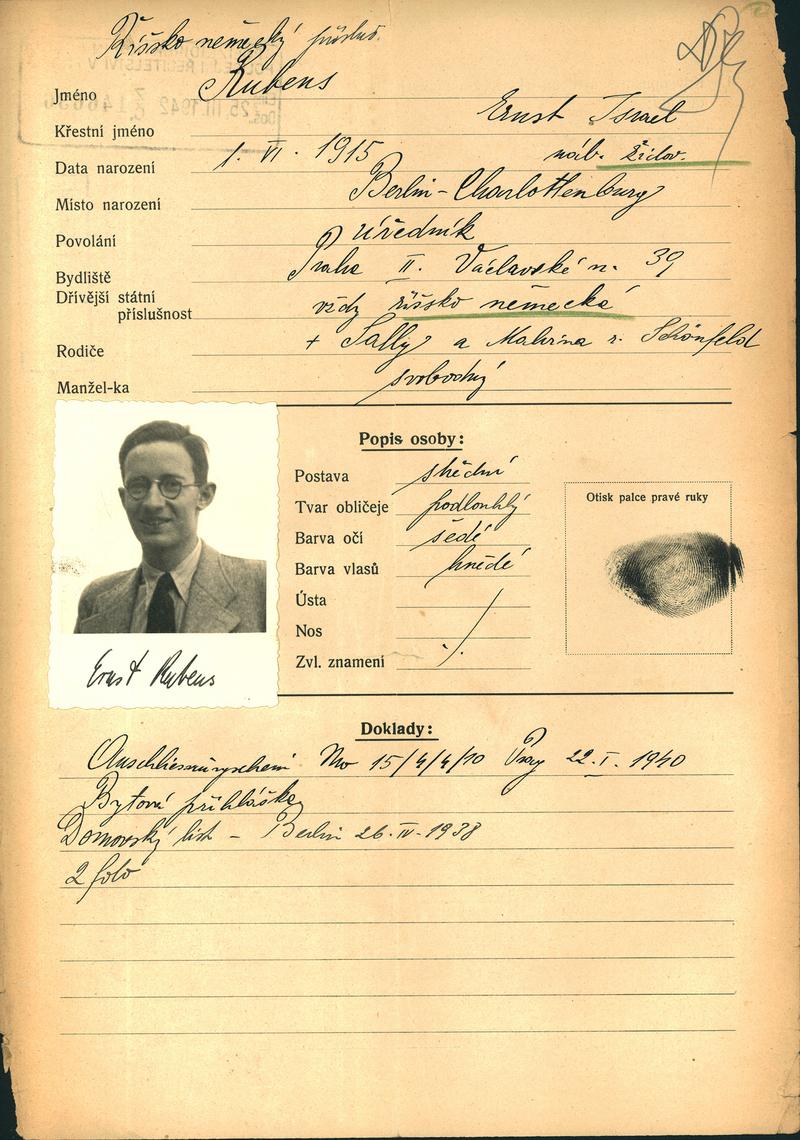 Říšsko německý přísluš.
Jméno Rubens
Křestní jméno Ernst Israel
Data narození 1. VI. 1915 náb. židov.
Místo narození Berlin-Charlottenburg
Povolání úředník
Bydliště Praha II. Václavské n. 39
Dřívější státní
příslušnost vždy říšsko německá
Rodiče + Sally a Malvina r. Schönfeld
Manžel-ka svobodný
Popis osoby:
Postava střední
Tvar obličeje podlouhlý
Barva očí šedé
Barva vlasů hnědé
Ústa
Nos
Zvl. znamení ./.
Otisk palce pravé ruky
Ernst Rubens
Doklady:
No 15/4/4/10 Prag 22.I.1940
Bytová přihláška
Domovský list - Berlin 26.IV.1938
2 foto